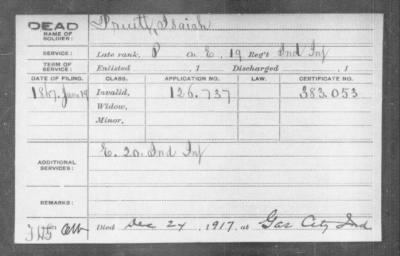 DEAD Pruitt, Isaiah
NAME OF SOLDIER:
SERVICE: Late rank, P Co. E, 19 Reg't Ind Inf
TERM OF SERVICE: Enlisted , 1 Discharged , 1
DATE OF FILING. CLASS. APPLICATION NO. LAW. CERTIFICATE NO.
1867, Jan. 19 Invalid, 126.737 383.053
Widow,
Minor,
ADDITIONAL SERVICES: E. 20. Ind Inf
REMARKS:
Died Dec 24, 1917, at Gas City Ind